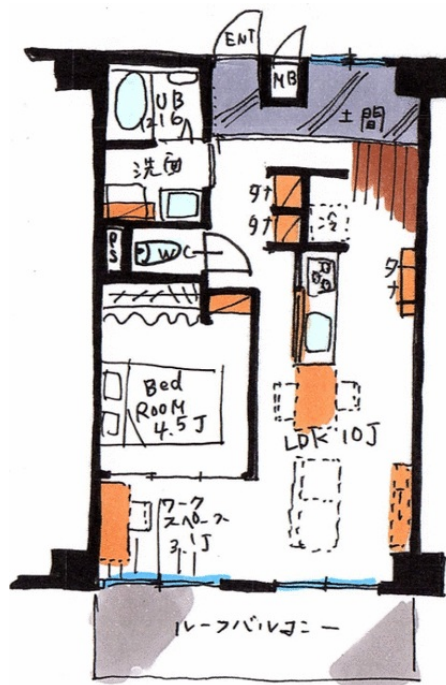 ENT
MB
UB
1216
土間
洗面
タナ
タナ
冷
PS
WC
タナ
Bed
ROOM
4.5J
LDK 10J
ワーク
スペース
3.1J
ルーフバルコニー